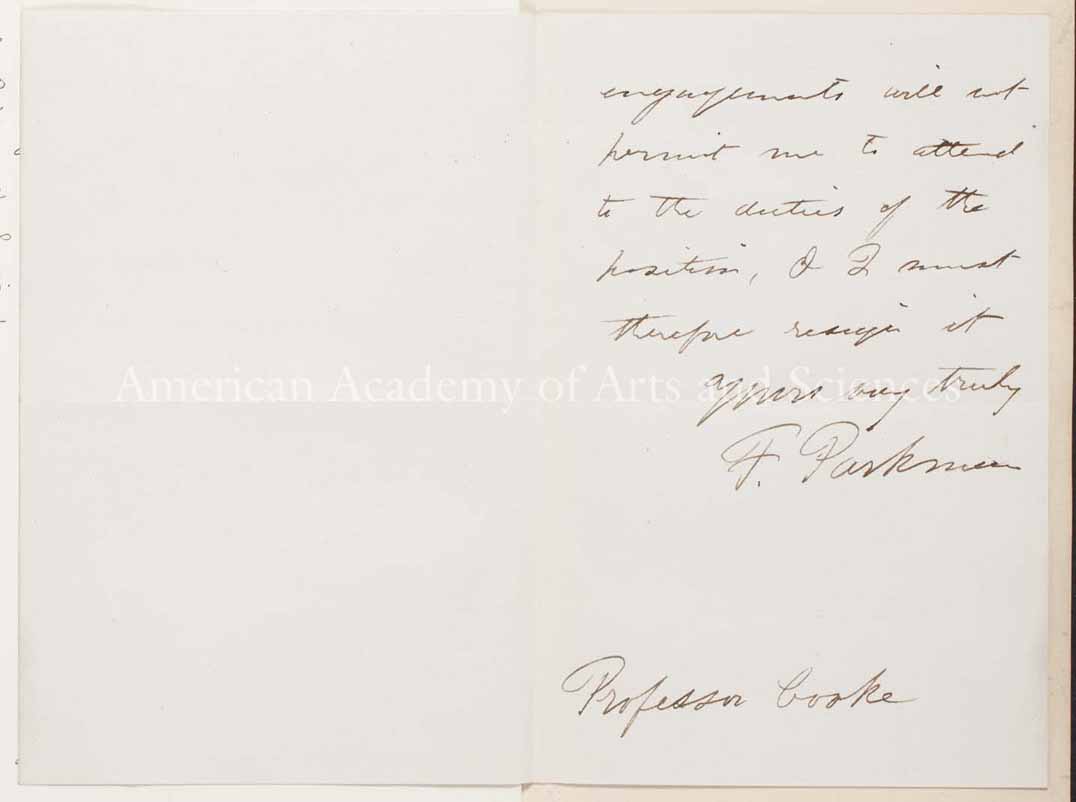 engagements will not
permit me to attend
to the duties of the
position, & I must
therefore resign it
yours very truly
F. Parkman
Professor Cooke
American Academy of Arts and Sciences